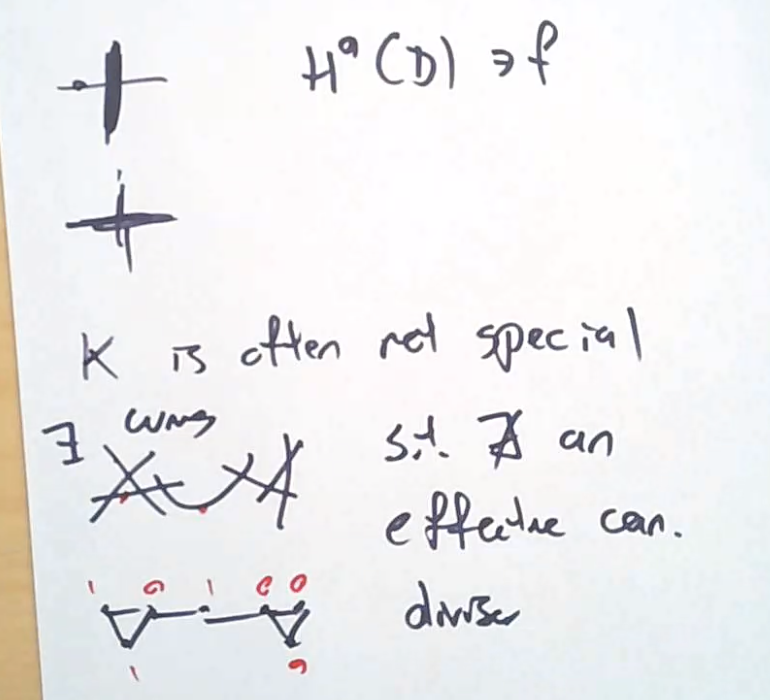 H⁰(D) ∋ f
K is often not special
∃ curves s.t. ∄ an
effective can.
divisor
1 0 1 0 0
1 0